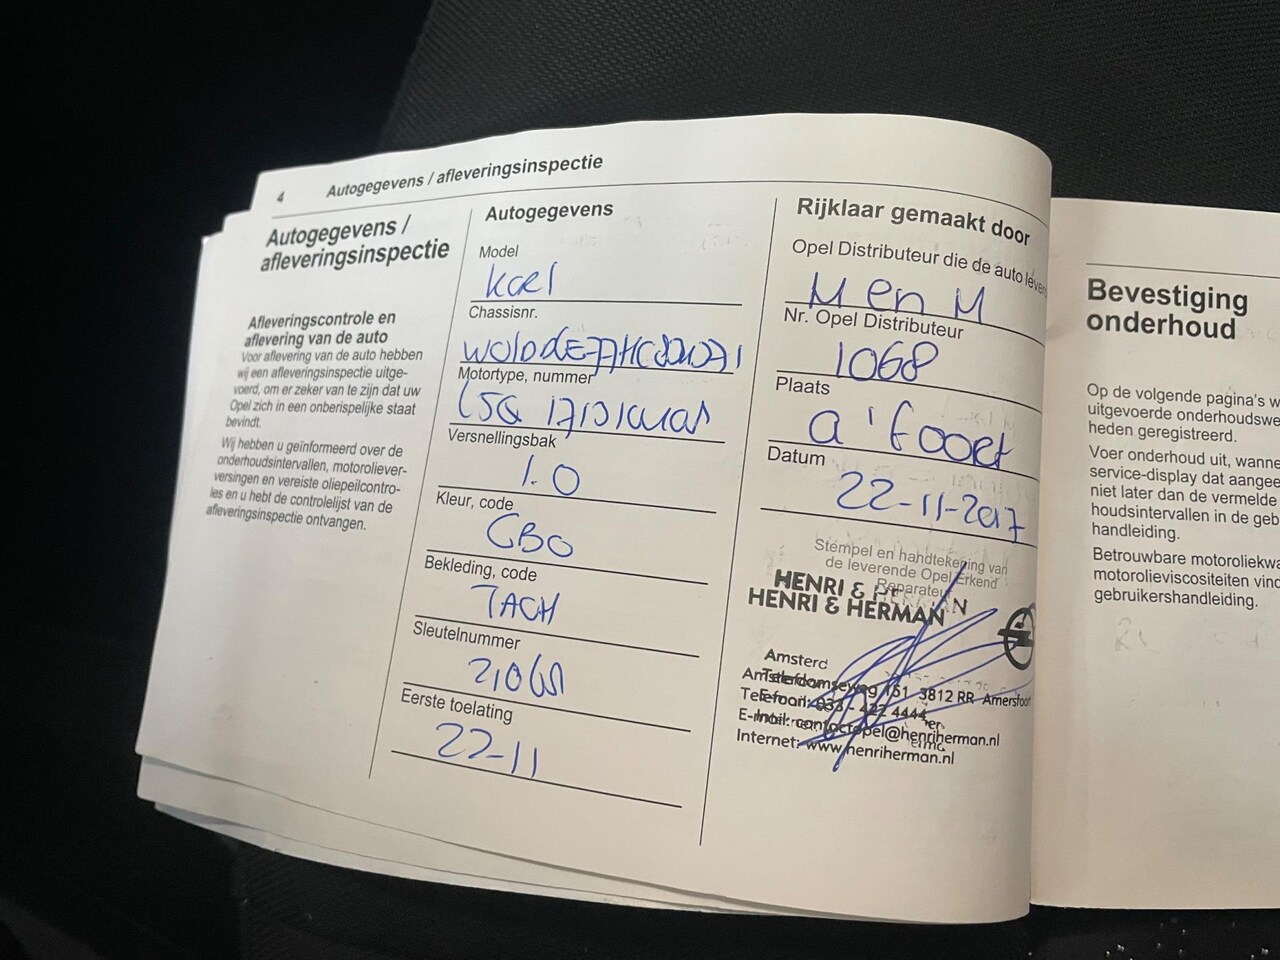 4 Autogegevens / afleveringsinspectie
Autogegevens /
afleveringsinspectie
Afleveringscontrole en
aflevering van de auto
Voor aflevering van de auto hebben
wij een afleveringsinspectie uitge-
voerd, om er zeker van te zijn dat uw
Opel zich in een onberispelijke staat
bevindt.
Wij hebben u geïnformeerd over de
onderhoudsintervallen, motoroliever-
versingen en vereiste oliepeilcontro-
les en u hebt de controlelijst van de
afleveringsinspectie ontvangen.
Autogegevens
Model
Karl
Chassisnr.
Motortype, nummer
Versnellingsbak
1.0
Kleur, code
GBO
Bekleding, code
TACH
Sleutelnummer
Eerste toelating
22-11
Rijklaar gemaakt door
Opel Distributeur die de auto
M en M
Nr. Opel Distributeur
1068
Plaats
a'foort
Datum
22-11-2017
Stempel en handtekening van
de leverende Opel Erkend
Reparateur
HENRI &
HENRI & HERMAN
Amsterd
Amsterdamseweg 151 3812 RR Amersfoort
Telefoon: 033 - 422 4444
E-mail: contactopel@henriherman.nl
Internet: www.henriherman.nl
Bevestiging
onderhoud
Op de volgende pagina's
uitgevoerde
heden geregistreerd.
Voer onderhoud uit,
service-display dat
niet later dan de vermelde
houdsintervallen in de
handleiding.
Betrouwbare
motorolieviscositeiten
gebruikershandleiding.